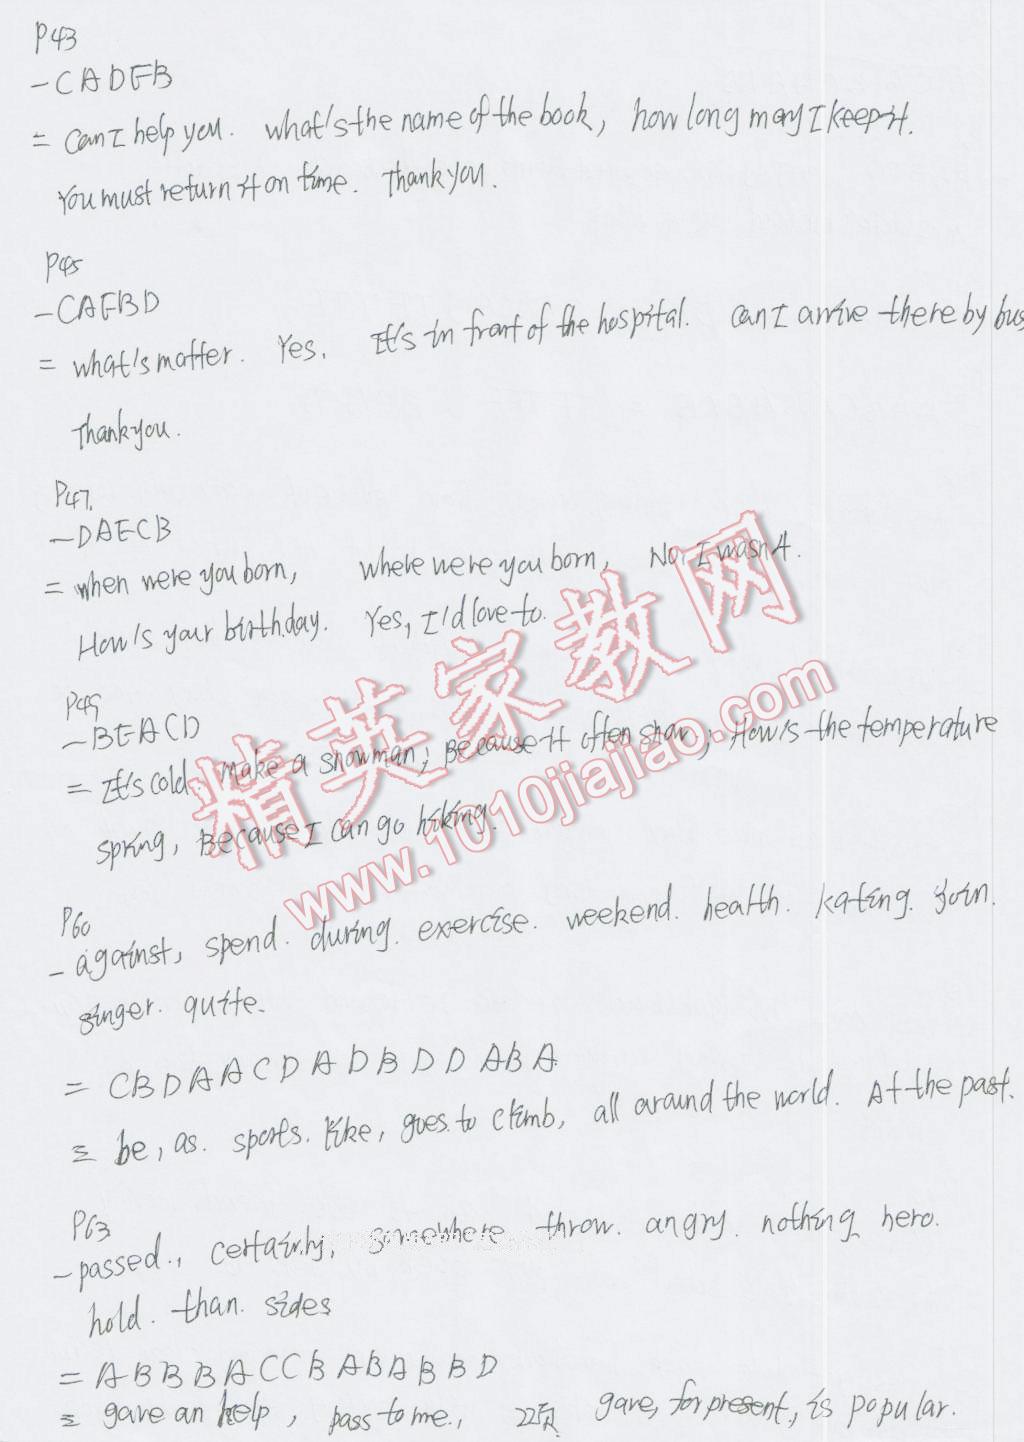 P43
一 C A D E B
二 Can I help you. what's the name of the book, how long may I keep it.
You must return it on time. Thank you.
P45
一 C A E B D
二 what's matter. Yes. It's in front of the hospital. can I arrive there by bus
Thank you.
P47.
一 D A E C B
二 when were you born, where were you born, No, I wasn't.
How's your birthday. Yes, I'd love to.
P49
一 B E A C D
二 It's cold. Make a snowman; Because it often snow; How's the temperature
spring, Because I can go hiking.
精英家教网
www.1010jiajiao.com
P60
一 against, spend. during. exercise. weekend. health. kating. join.
singer. quite.
二 C B D A A C D A D B D D A B A
三 be, as. sports. like, goes to climb, all around the world. At the past.
P63
一 passed., certainly, somewhere throw. angry. nothing hero.
hold. than. sides
二 A B B B A C C B A B A B B D
三 gave an help, pass to me., 22页 gave, for present, is popular.